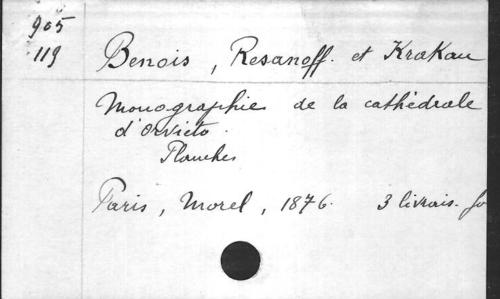 905
119
Benois, Resanoff. et Krakau
Monographie de la cathédrale
d'Orvieto.
Planches
Paris, Morel, 1876. 3 livrais. fo